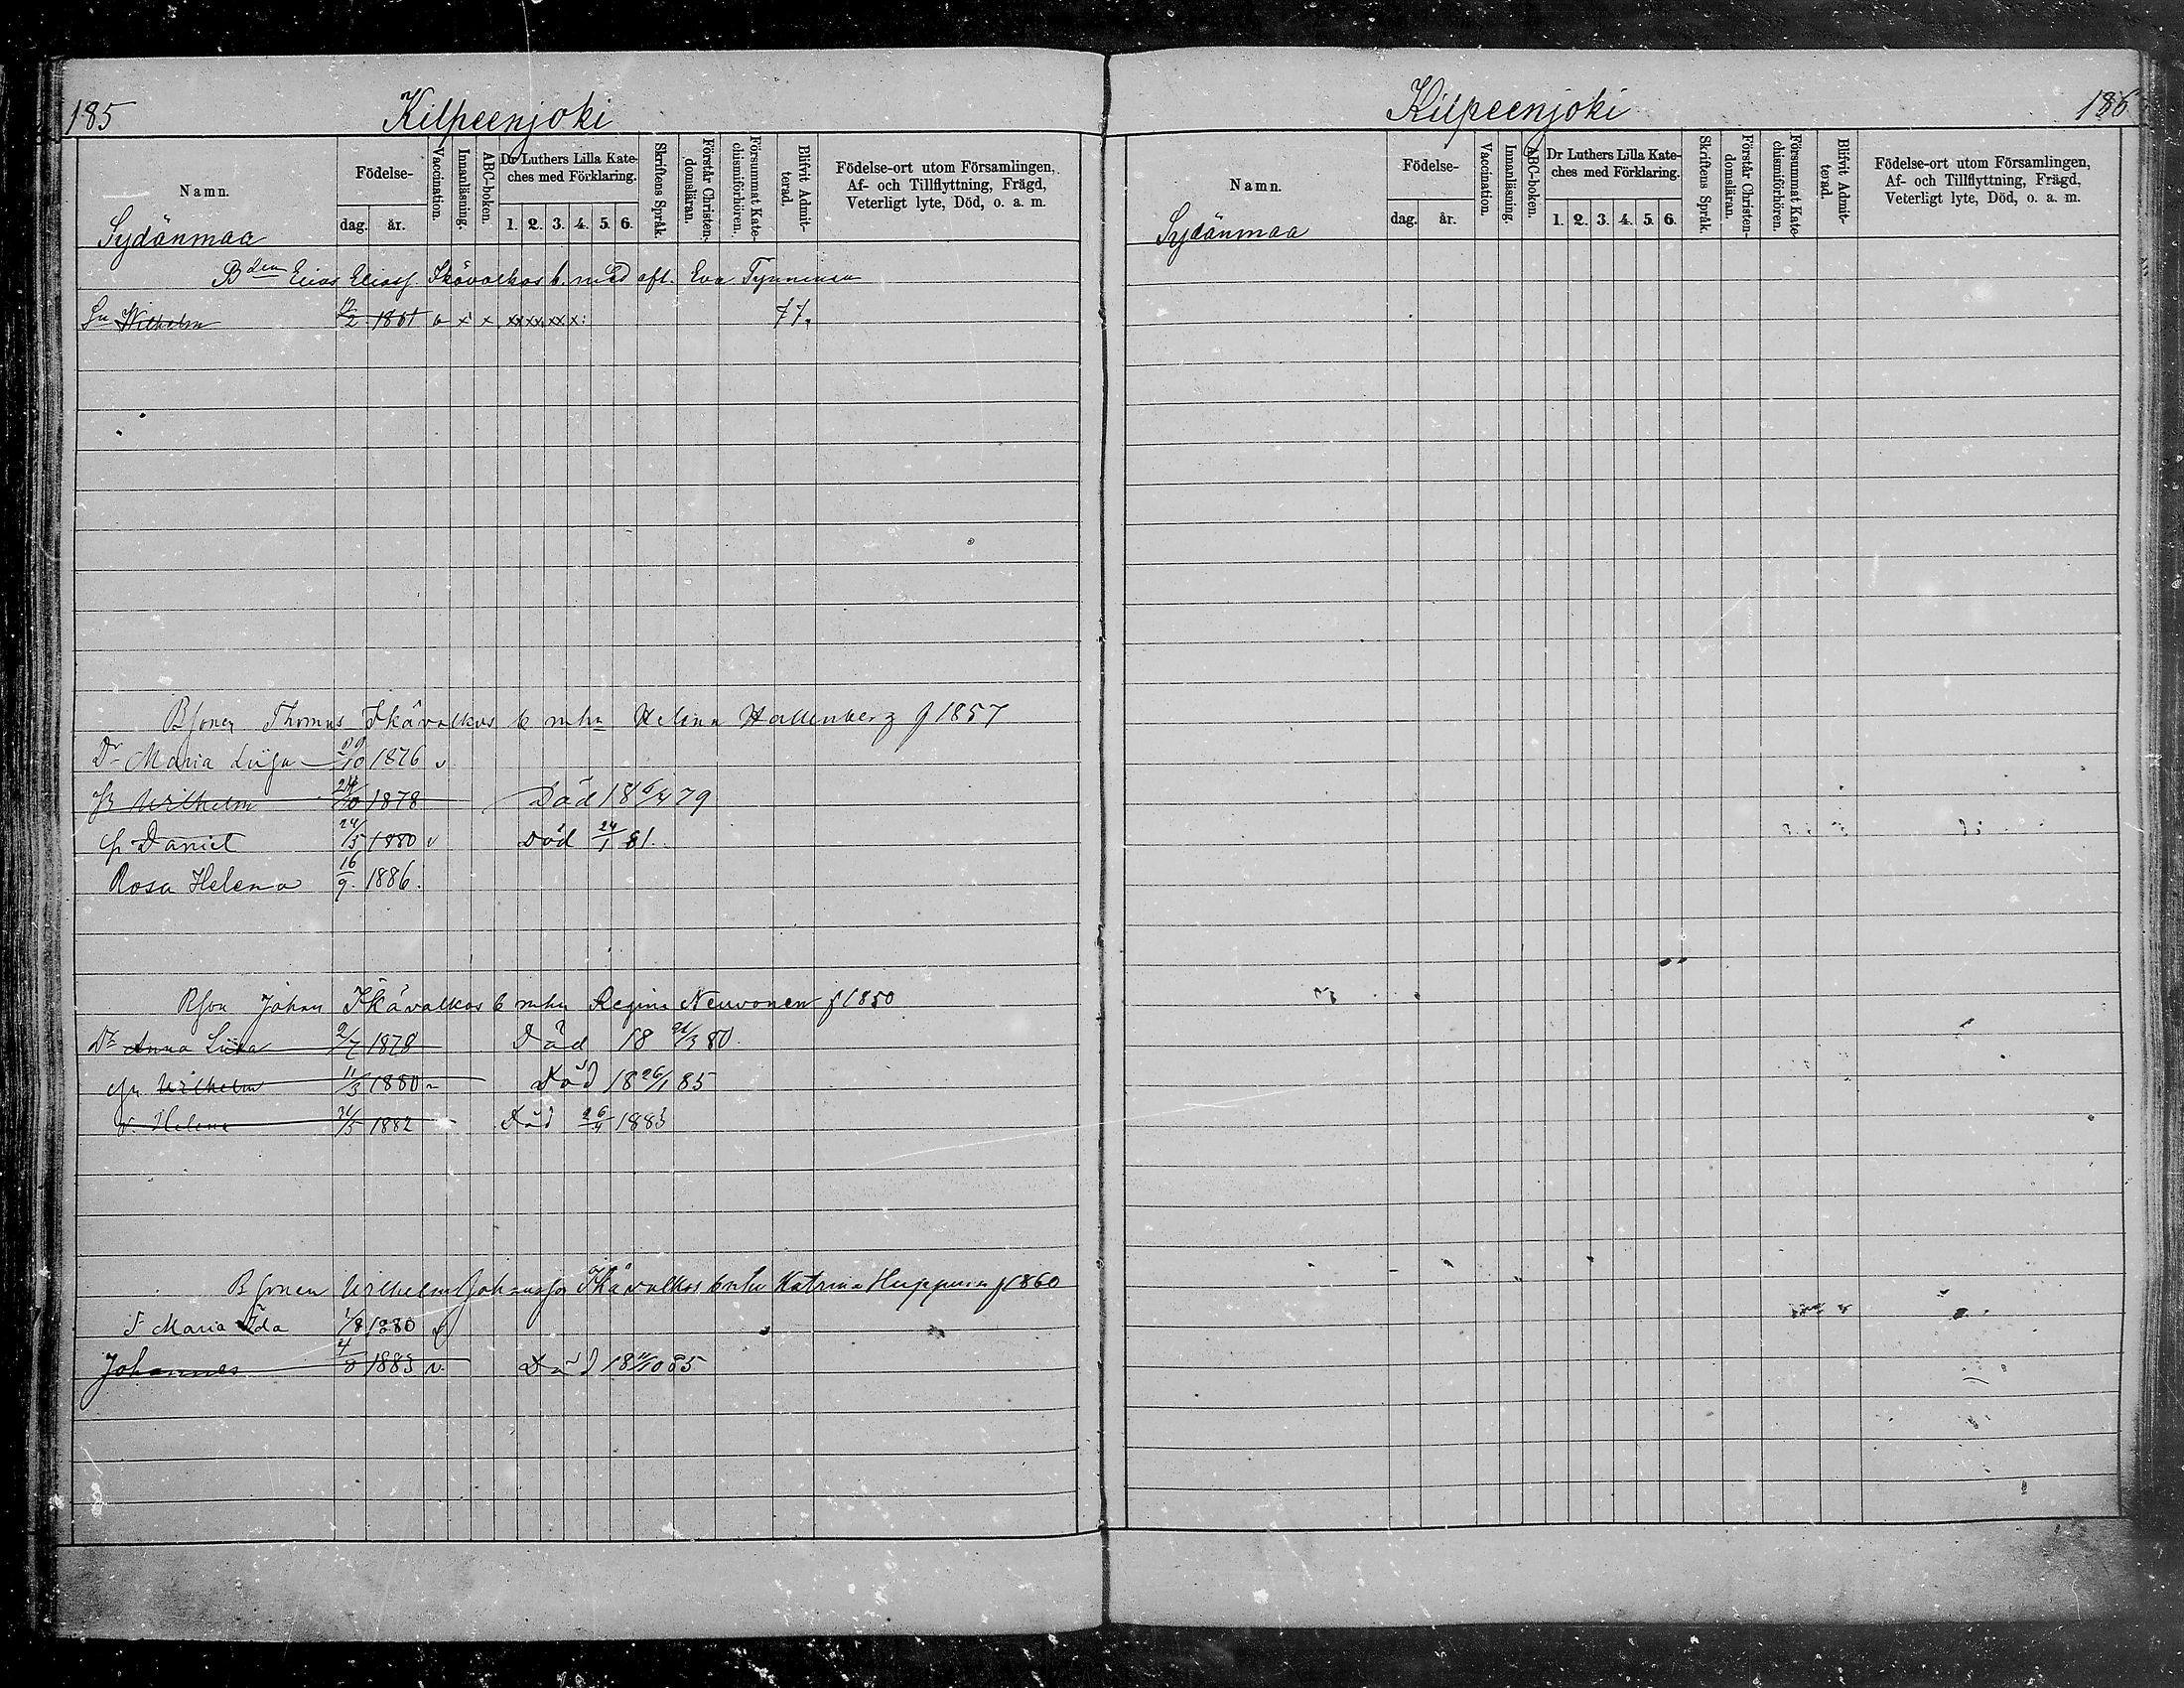 185 Kilpeenjoki
Namn.
Födelse-
dag. år.
Vaccination.
Innanläsning.
ABC-boken.
Dr Luthers Lilla Kate-
ches med Förklaring.
1. 2. 3. 4. 5. 6.
Skriftens Språk.
Förstår Christen-
domsläran.
Försummat Kate-
chismiförhören.
Blifvit Admit-
terad.
Födelse-ort utom Församlingen,
Af- och Tillflyttning, Frägd,
Veterligt lyte, Död, o. a. m.
Sydänmaa
Bden Elias Eliass. Ikävalkos b. med afl. Eva Tynninen
Sn Wilhelm 12/2 1861 v x x xx xx xx x: 77.
Bsonen Thomas Ikävalkos b mhu Helena Hallenberg f 1857
Dr Maria Liisa 29/10 1876 v
Sn Wilhelm 24/10 1878 Död 18 6/4 79
Sn Daniel 24/5 1880 v Död 24/1 81.
Rosa Helena 16/9. 1886.
Bson Johan Ikävalkos b mhu Regina Neuvonen f 1850
Dr Anna Liisa 2/7 1878 Död 18 21/3 80.
Sn Wilhelm 11/3 1880 Död 18 26/1 85
D. Helena 31/5 1882 Död 26/4 1883
Bsonen Wilhelm Johansson Ikävalkos b mhu Katrina Huppunen f 1860
F Maria Ida 1/8 1880 v
Johannes 4/8 1883 v. Död 18 11/10 85
Kilpeenjoki 186
Namn.
Födelse-
dag. år.
Vaccination.
Innanläsning.
ABC-boken.
Dr Luthers Lilla Kate-
ches med Förklaring.
1. 2. 3. 4. 5. 6.
Skriftens Språk.
Förstår Christen-
domsläran.
Försummat Kate-
chismiförhören.
Blifvit Admit-
terad.
Födelse-ort utom Församlingen,
Af- och Tillflyttning, Frägd,
Veterligt lyte, Död, o. a. m.
Sydänmaa